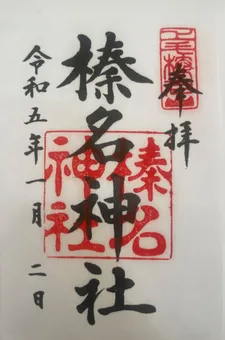 奉拝
榛名神社
令和五年一月二日
榛名
神社